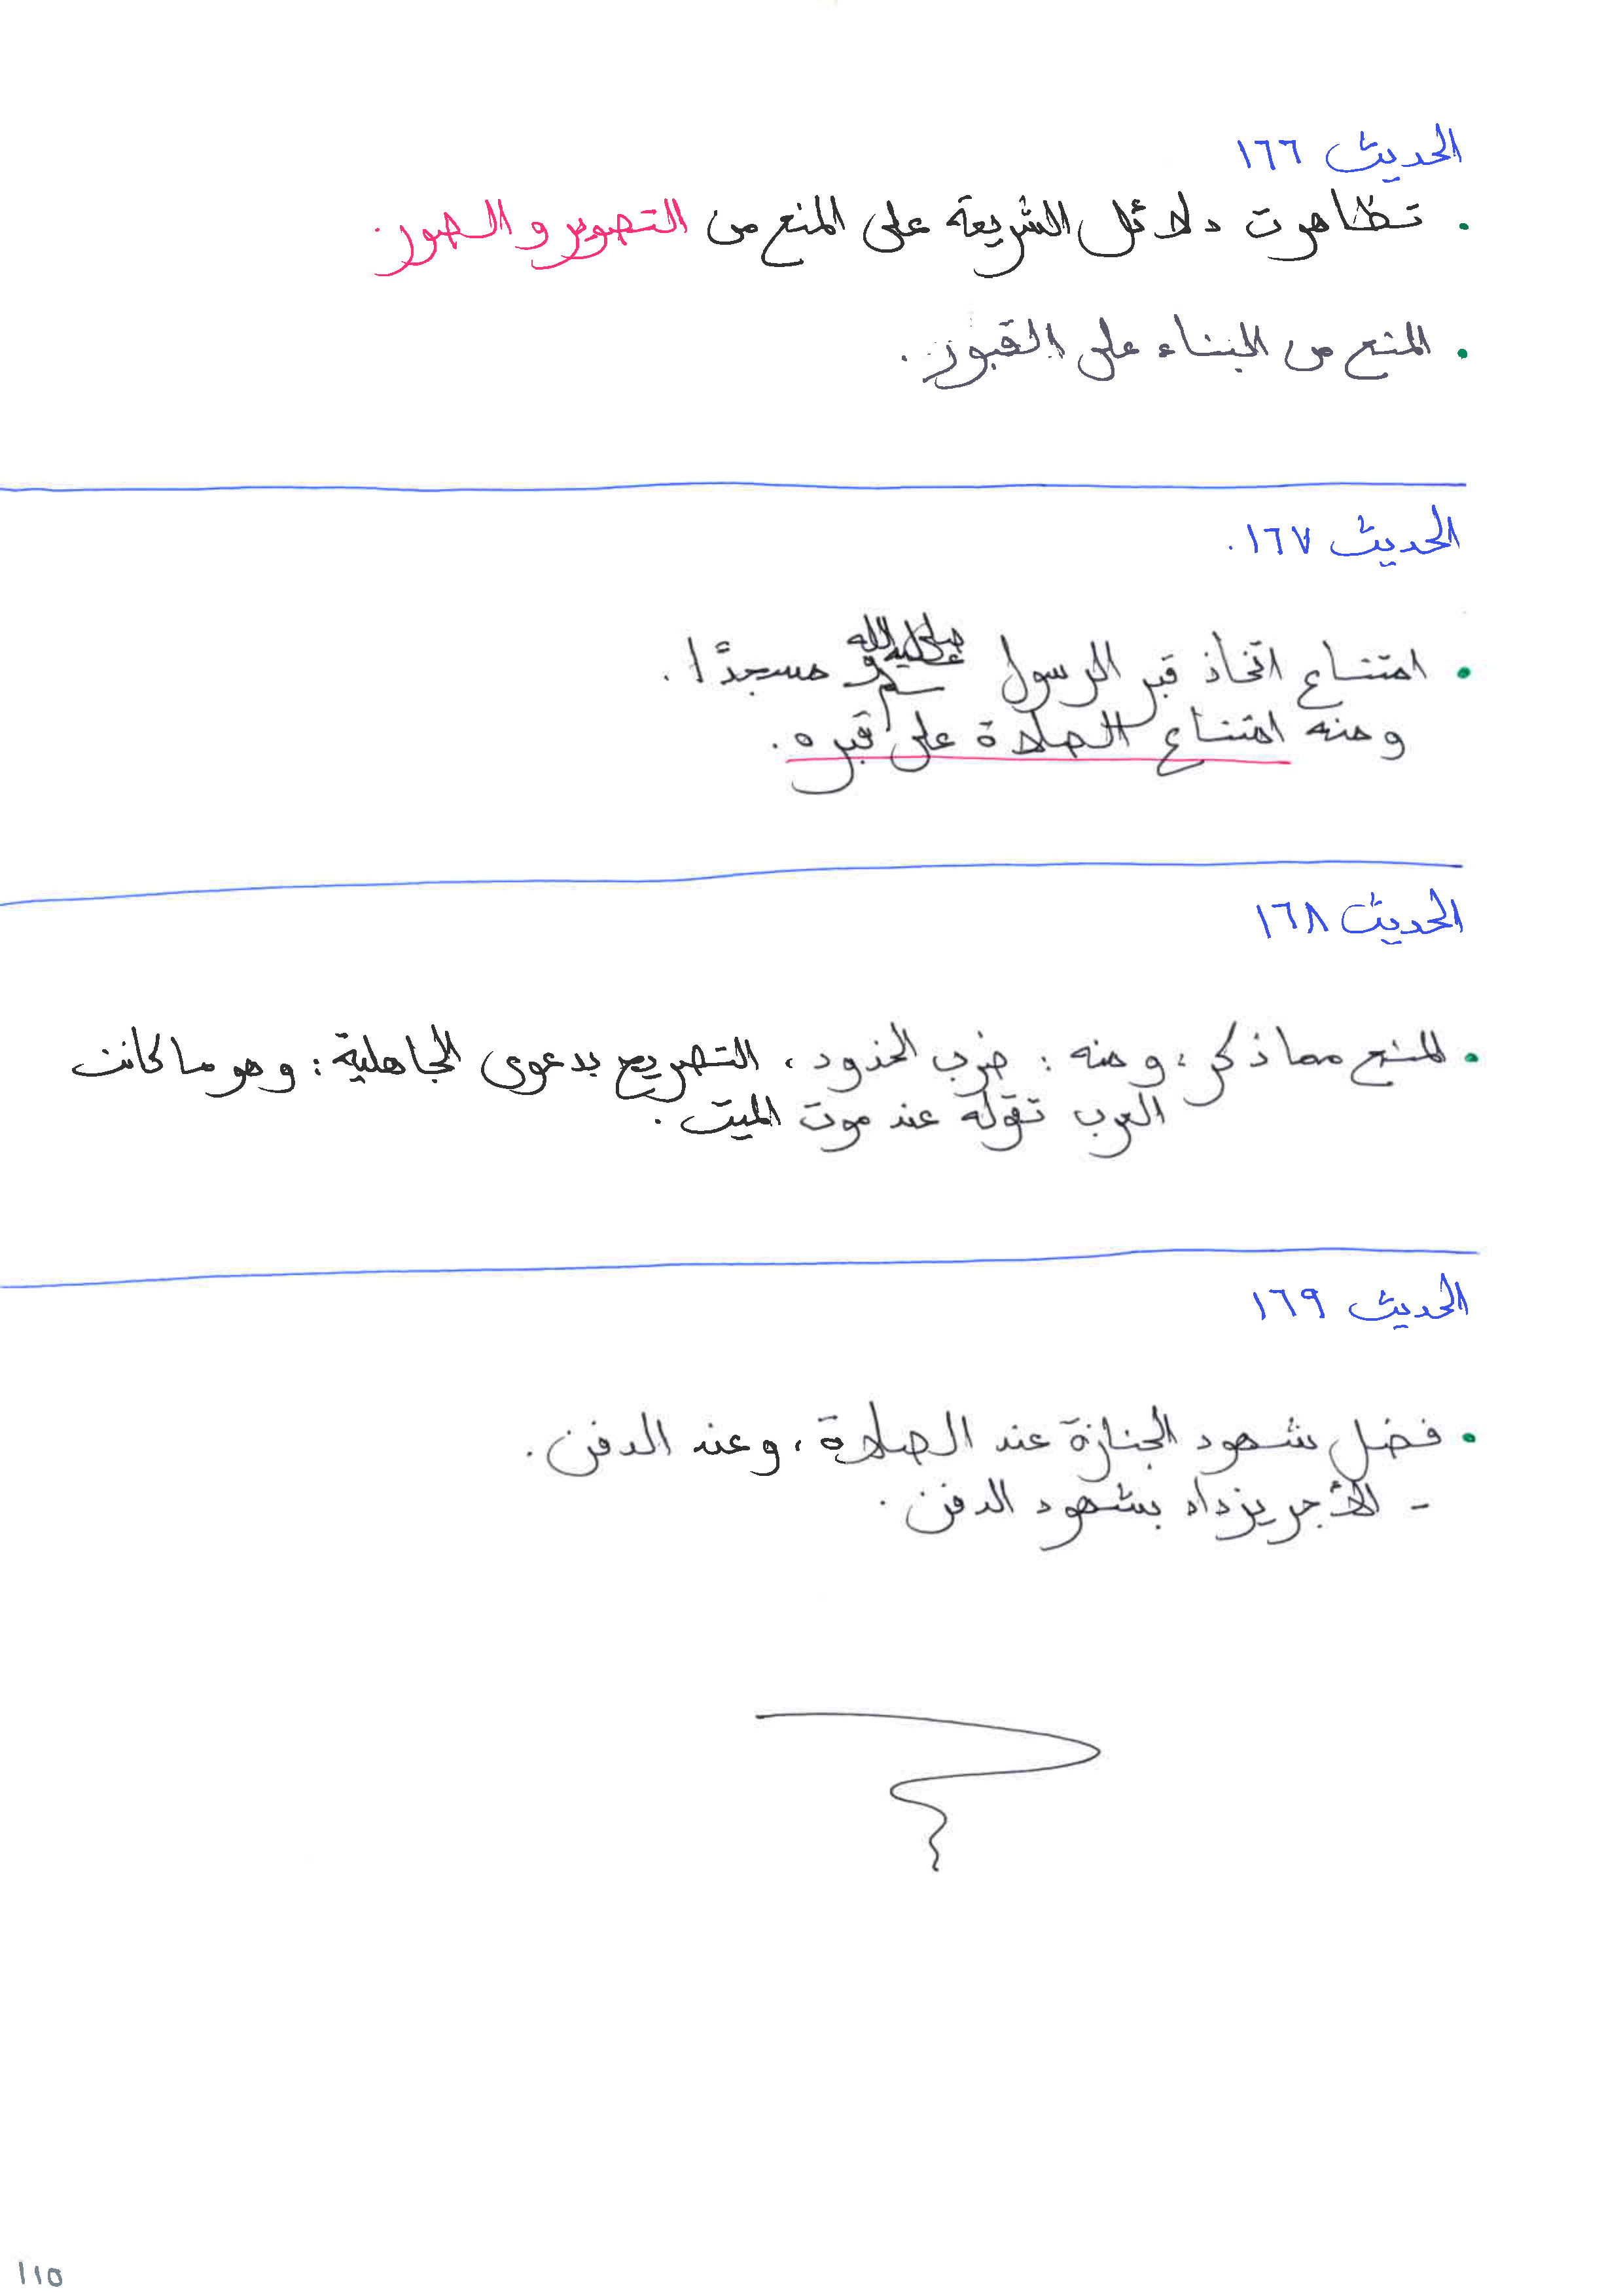 الحديث ١٦٦
• تظاهرت دلائل الشريعة على المنع من التصوير والصور.
• المنع من البناء على القبور.
الحديث ١٦٧.
• امتناع اتخاذ قبر الرسول صلى الله عليه وسلم مسجدًا.
ومنه امتناع الصلاة على قبره.
الحديث ١٦٨
• المنع مما ذكر، ومنه: ضرب الخدود، التصريح بدعوى الجاهلية: وهو ما كانت
العرب تقوله عند موت الميت.
الحديث ١٦٩
• فضل شهود الجنازة عند الصلاة، وعند الدفن.
- الأجر يزداد بشهود الدفن.
١١٥